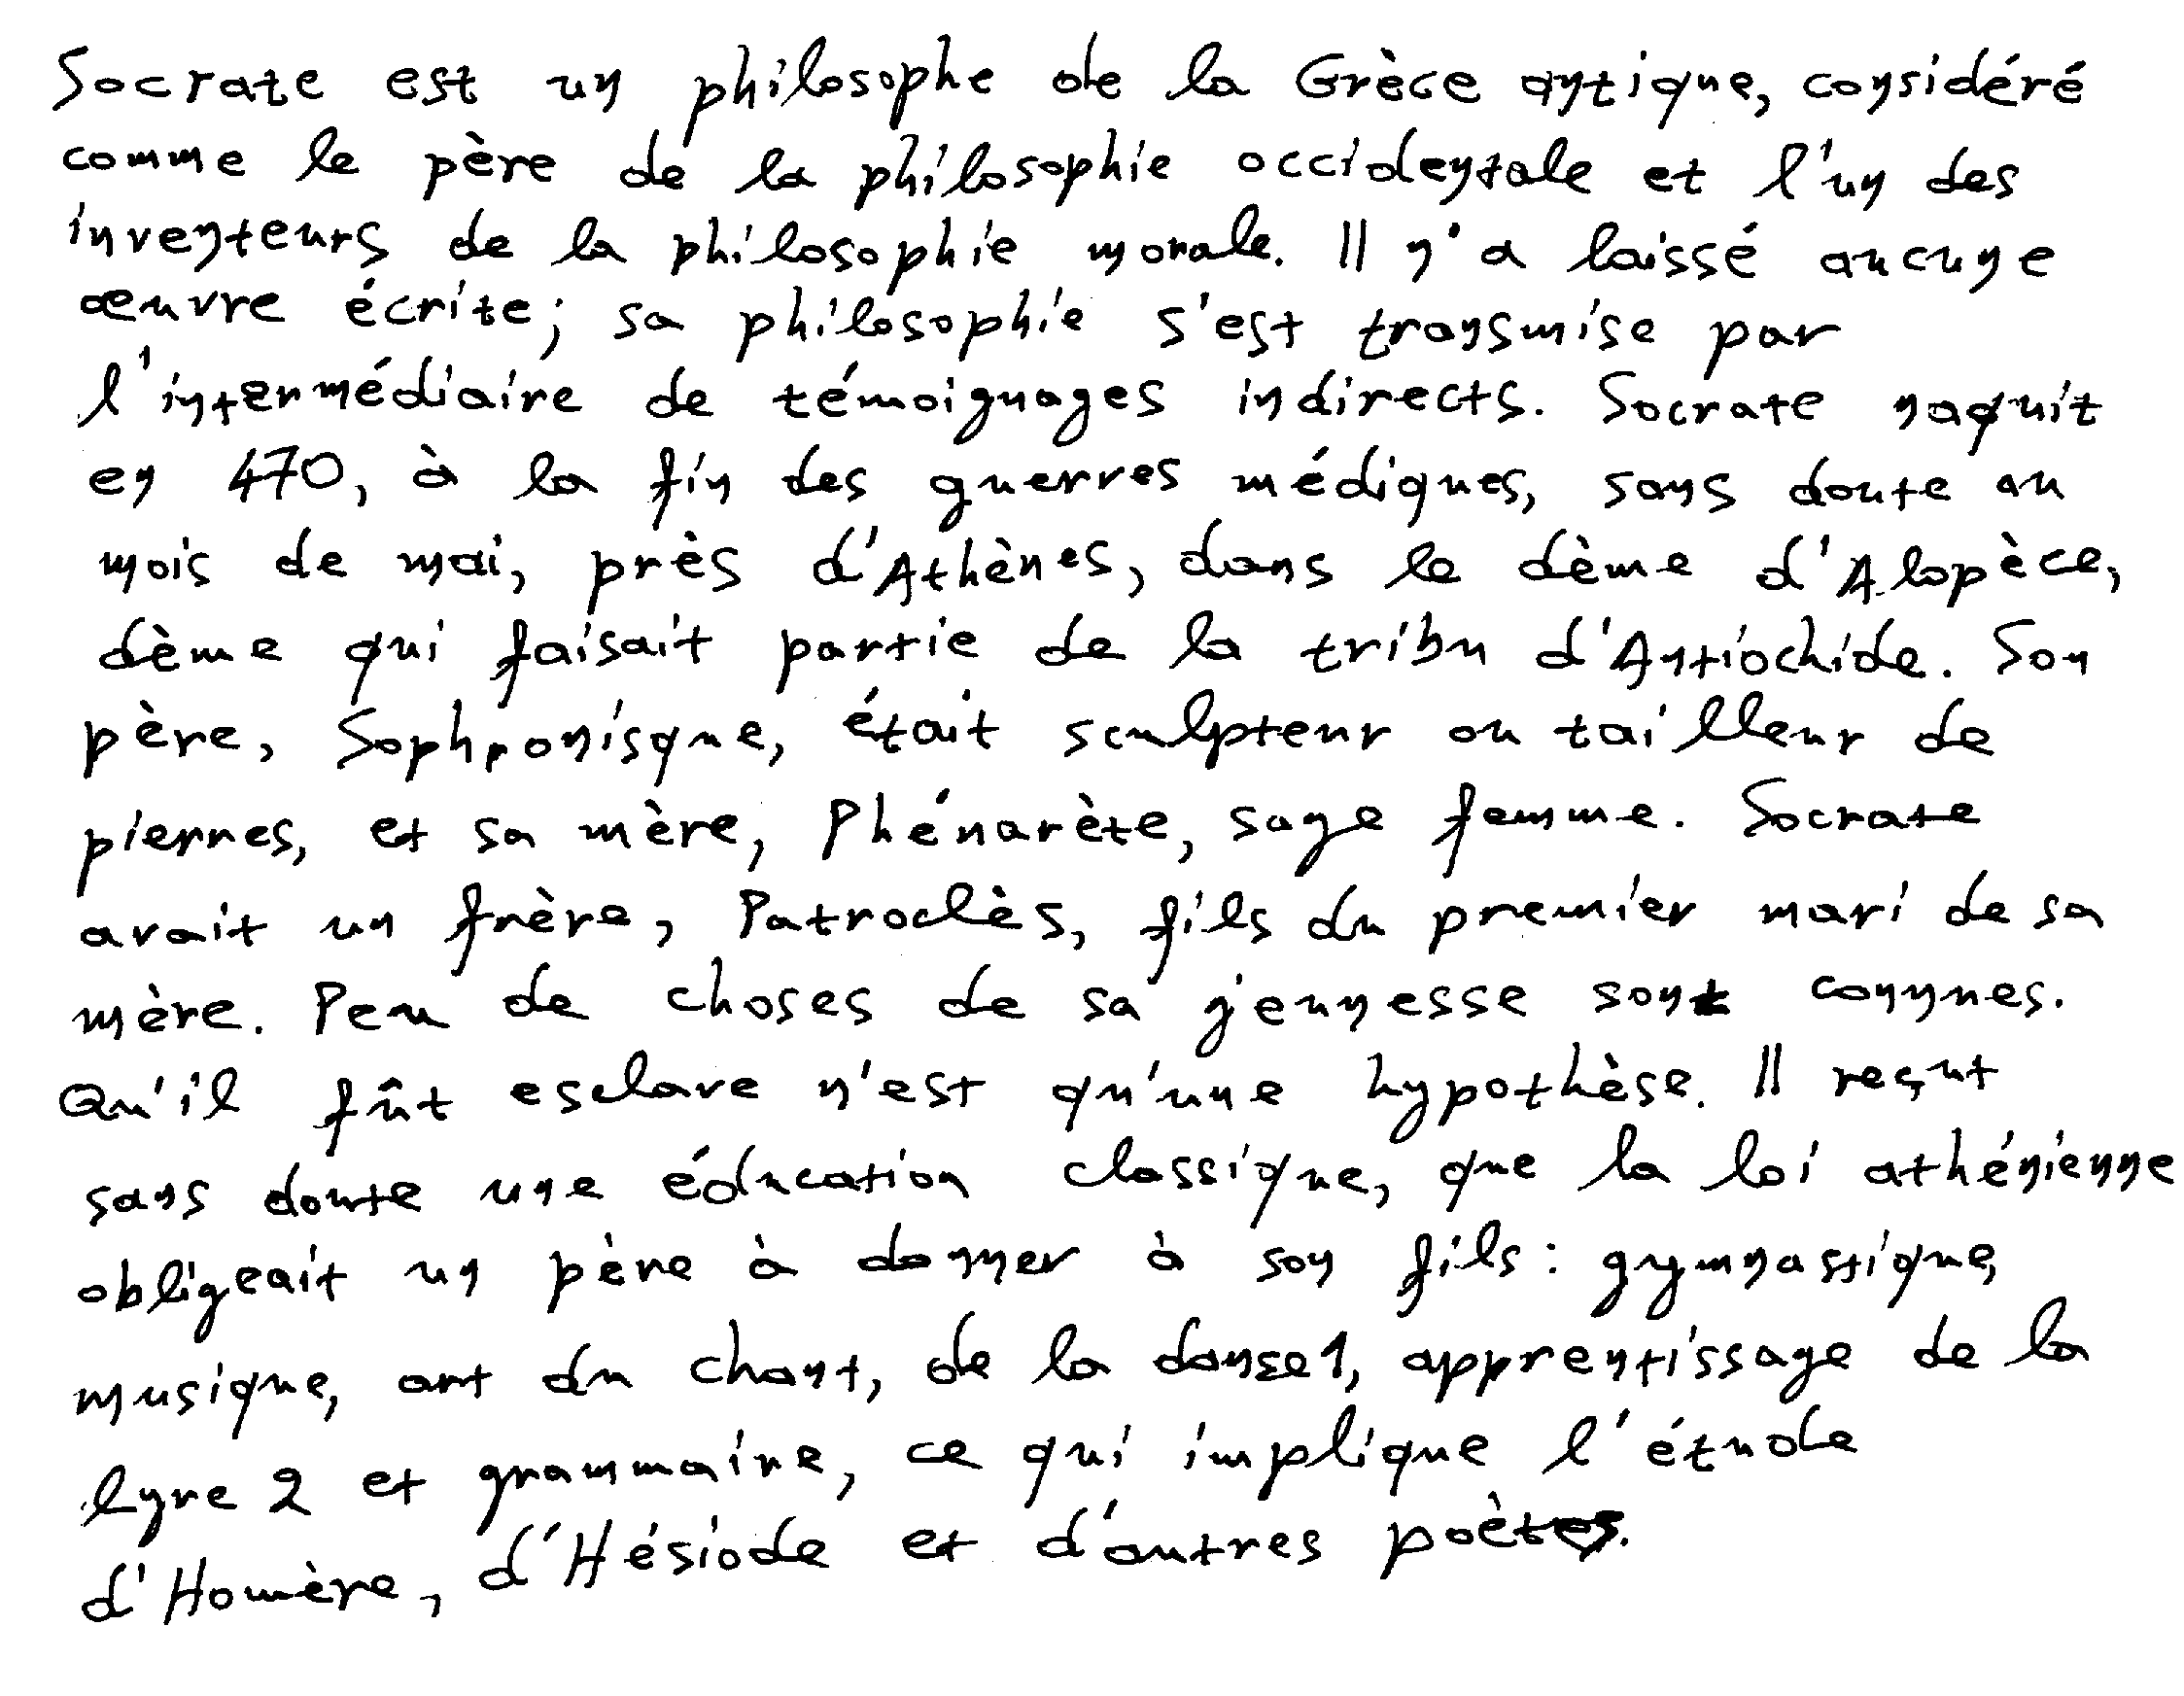 Socrate est un philosophe de la Grèce antique, considéré
comme le père de la philosophie occidentale et l'un des
inventeurs de la philosophie morale. Il n'a laissé aucune
œuvre écrite; sa philosophie s'est transmise par
l'intermédiaire de témoignages indirects. Socrate naquit
en 470, à la fin des guerres médiques, sans doute au
mois de mai, près d'Athènes, dans le dème d'Alopèce,
dème qui faisait partie de la tribu d'Antiochide. Son
père, Sophronisque, était sculpteur ou tailleur de
pierres, et sa mère, Phénarète, sage femme. Socrate
avait un frère, Patroclès, fils du premier mari de sa
mère. Peu de choses de sa jeunesse sont connues.
Qu'il fût esclave n'est qu'une hypothèse. Il reçut
sans doute une éducation classique, que la loi athénienne
obligeait un père à donner à son fils: gymnastique,
musique, art du chant, de la danse1, apprentissage de la
lyre 2 et grammaire, ce qui implique l'étude
d'Homère, d'Hésiode et d'autres poètes.